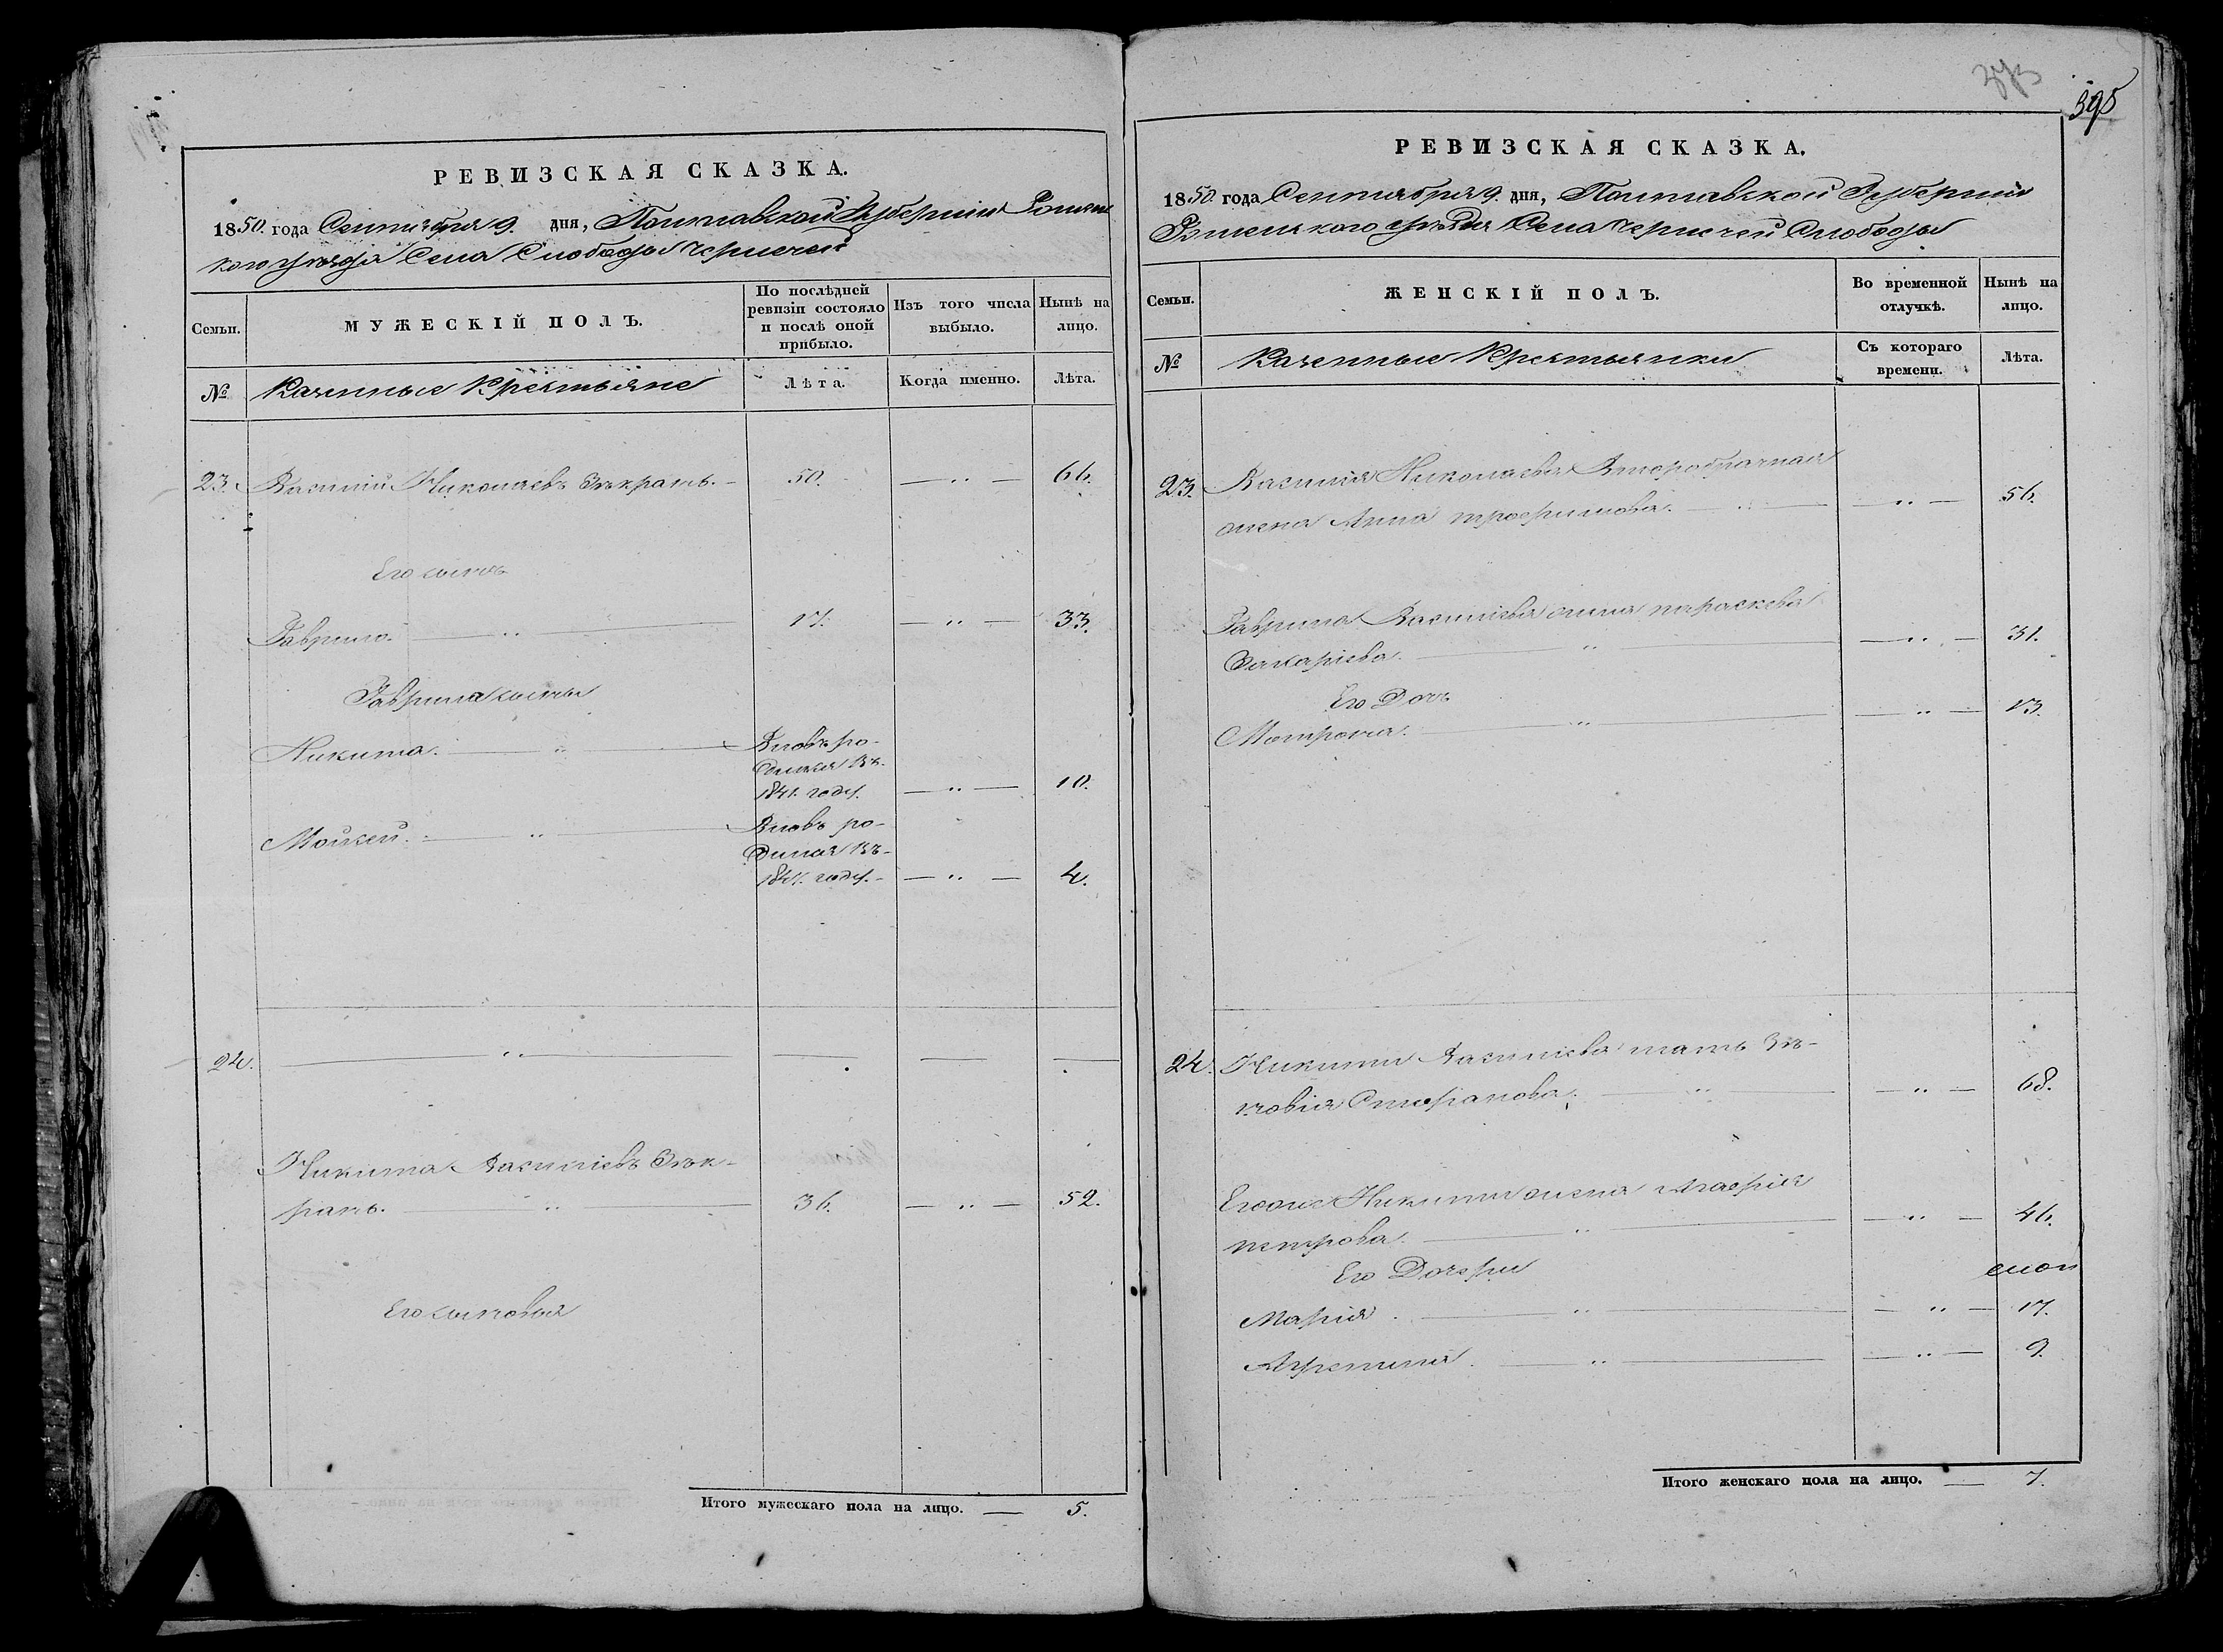 РЕВИЗСКАЯ СКАЗКА.
1850. года Сентября 9. дня, Полтавской Губернии Роменс
кого уезда Села Слободы Чернечей
Семьи.
МУЖЕСКІЙ ПОЛЪ.
По послѣдней ревизіи состояло и послѣ оной прибыло.
Изъ того числа выбыло.
Нынѣ на лицо.
№
Казенные Крестьяне
Лѣта.
Когда именно.
Лѣта.
23. Василий Николаевъ 50. — „ — 66.
Его сынъ
Гаврило. — „ — 17. — „ — 33.
Гаврила сыны
Никита. — „ — Вновь ро-
дился въ
1841. году. — „ — 10.
Мойсей. — „ — Вновь ро-
дился въ
1847. году. — „ — 4.
24. — „ —
Никита Васильевъ
„ — 36. — „ — 52.
Его сыновья
Итого мужескаго пола на лицо. — 5.
395
РЕВИЗСКАЯ СКАЗКА.
1850. года Сентября 9. дня, Полтавской Губернии
Роменского уезда Села Чернечей Слободы
Семьи.
ЖЕНСКІЙ ПОЛЪ.
Во временной отлучкѣ.
Нынѣ на лицо.
№
Казенные Крестьянки
Съ котораго времени.
Лѣта.
23. Василия Николаева Второбрачная
жена Анна Трофимова. — „ — 56.
Гаврила Васильева жена Параскева
Захарієва. — „ — 31.
Его Дочь
Матрона. — „ — 13.
24. Никиты Васильева мать Зѣ-
новія Стефанова. — „ — 68.
Егоже Никиты жена Марфія
Петрова. — „ — 46.
Его Дочери
Марія. — „ — 17.
Агрепина. — „ — 9.
Итого женскаго пола на лицо. — 7.